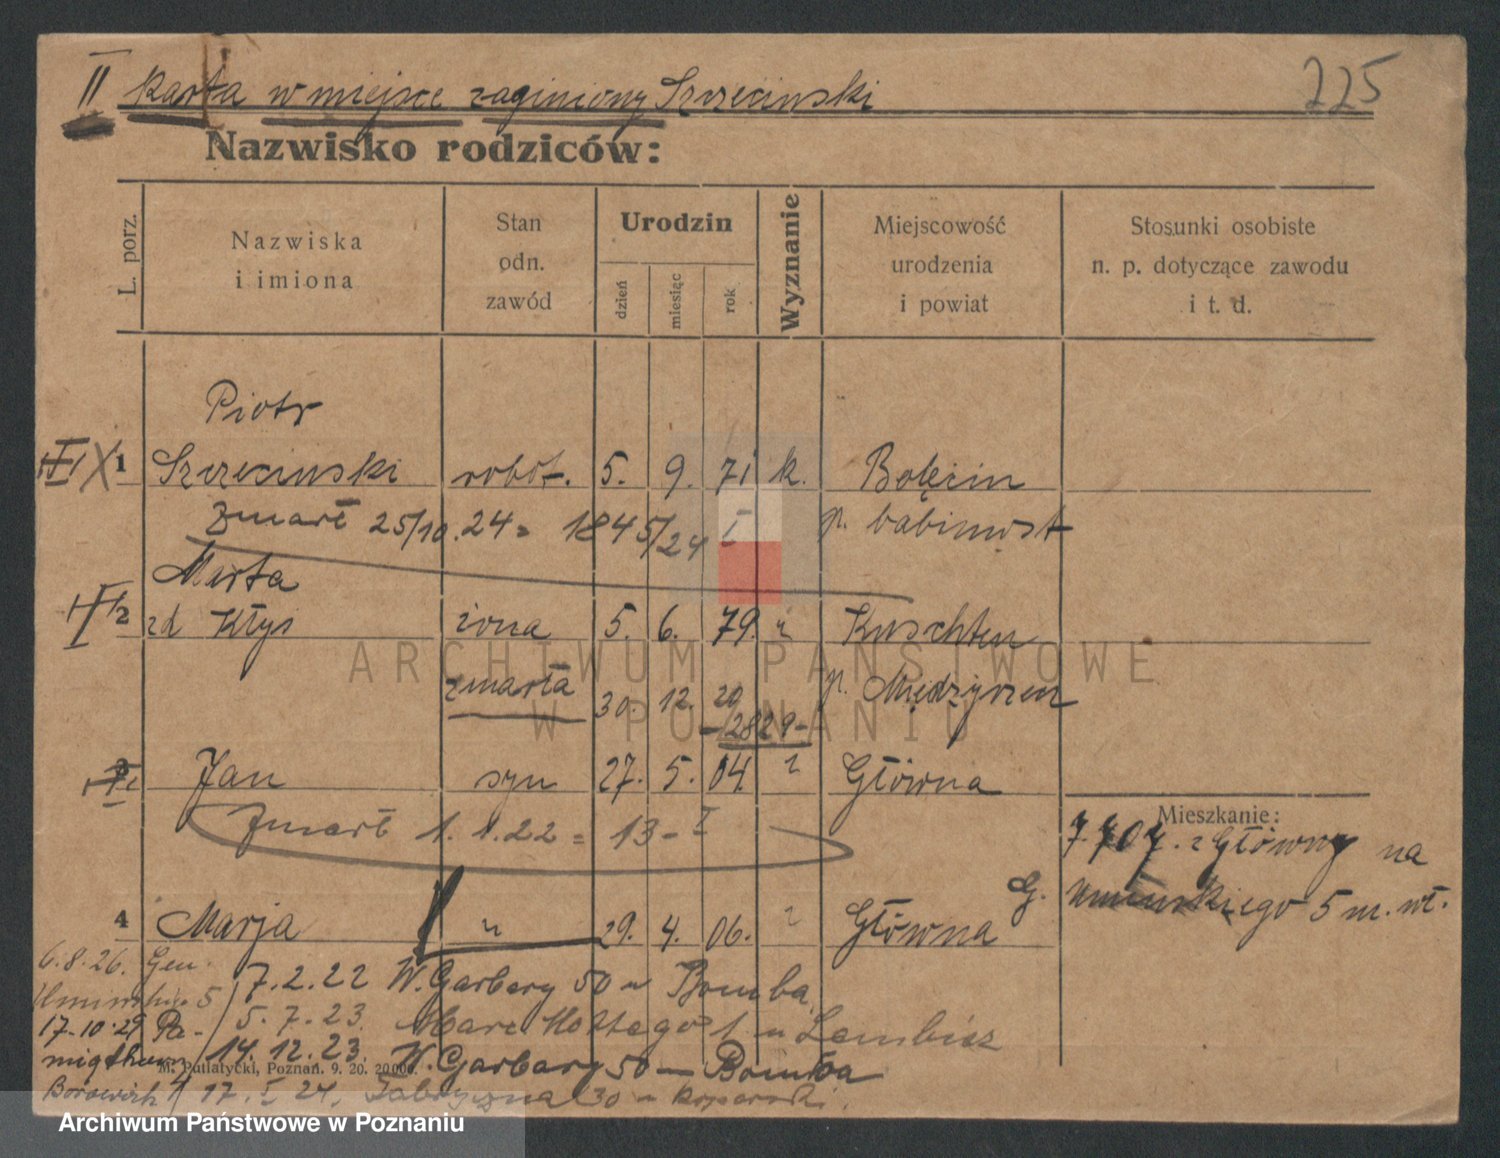 II Karta w miejsce zaginiony Szczecinski
225
Nazwisko rodziców:
L. porz.
Nazwiska
i imiona
Stan
odn.
zawód
Urodzin
dzień
miesiąc
rok
Wyznanie
Miejscowość
urodzenia
i powiat
Stosunki osobiste
n. p. dotyczące zawodu
i t. d.
Piotr
1 Szczecinski robot. 5. 9. 71 k. Bolęcin
Zmarł 25/10.24 = 1845/24 I p. babimost
Marta
2 zd Kłys żona 5. 6. 79. Kuschten
zmarła 30. 12. 20 p. Międzyrzecz
-2829-
3 Jan syn 27. 5. 04 Główna
Zmarł 1.1.22 = 13-I
Mieszkanie:
7.7.07. z Główny na
G. Umińskiego 5 m. wł.
4 Marja 29. 4. 06. Główna
6.8.26. Gen.
Umińskiego 5
7.2.22 W. Garbary 50 u Bomba
17-10-29 Pa-
5.7.23. Marc. Mottego 1 u Lembicz
14.12.23. W. Garbary 50 — Bomba
M. Putiatycki, Poznań. 9. 20. 20000.
17. I 24. Fabryczna 30 u
ARCHIWUM PAŃSTWOWE
W POZNANIU
Archiwum Państwowe w Poznaniu